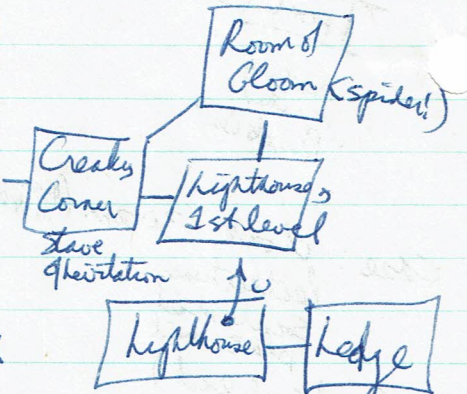 Room of
Gloom (Spider!)
Creaky
Corner
Stave
of Levitation
Lighthouse,
1st level
U
Lighthouse
Ledge